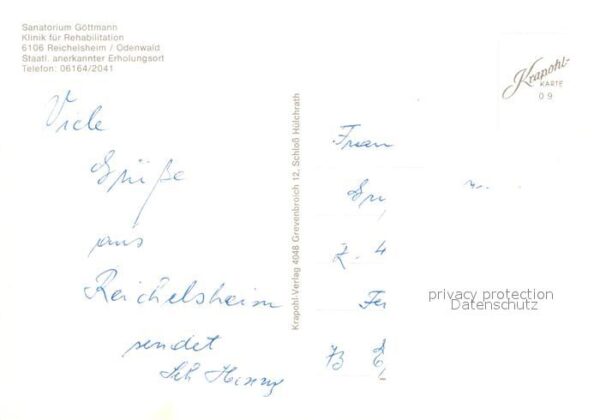 Sanatorium Göttmann
Klinik für Rehabilitation
6106 Reichelsheim / Odenwald
Staatl. anerkannter Erholungsort
Telefon: 06164/2041
Viele
Grüße
aus
Reichelsheim
sendet
Krapohl-Verlag 4048 Grevenbroich 12, Schloß Hülchrath
Krapohl-
KARTE
09
Frau
privacy protection
Datenschutz